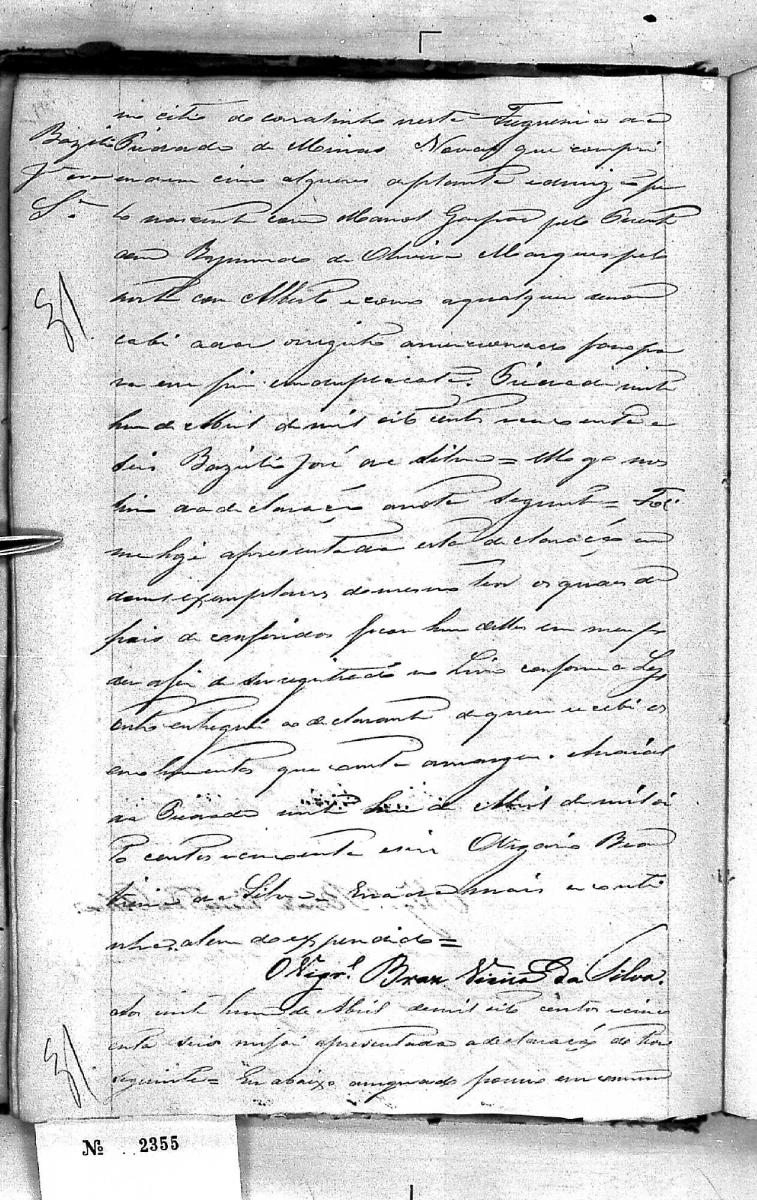 no citio do corratinho nesta Freguesia da
Bazilio Piedade de Minas Novas que compri
José da endem cinco alqueres de planta e divizão pe
S.ª lo nascente com Manoel Gaspar pelo Puente
com Raymundo de Oliveira Marques pelo
31 norte com Alberto e como a qualquer dono
cabi a dar o registo a mencionado faço pa
ra em fim em duplicata. Piedade vinte
hum de Abril de mil oito centos e sincoenta e
seis Bazilio José da Silva =
declaração a nota seguinte = Foi
me hoje apresentada esta declaração em
dous exemplares do mesmo theor os quaes de
pois de conferidos ficou hum delles em meu po
der a fim de ser registrado no Livro conforme a Ley
outro entreguei ao declarante de quem recebi os
emolumentos que consta a margem. Arraial
da Piedade vinte hum de Abril de mil oi
to centos e cincoenta e seis O Vigario Bra
Vieira da Silva. E nada mais se conti
nha alem do expendido =
O Vigr.º Bras Vieira da Silva.
Aos vinte hum de Abril de mil oito centos e cinco
31 enta e seis me foi apresentada a declaração do theor
seguinte = Eu abaixo asignado possuo em comum
№ 2355